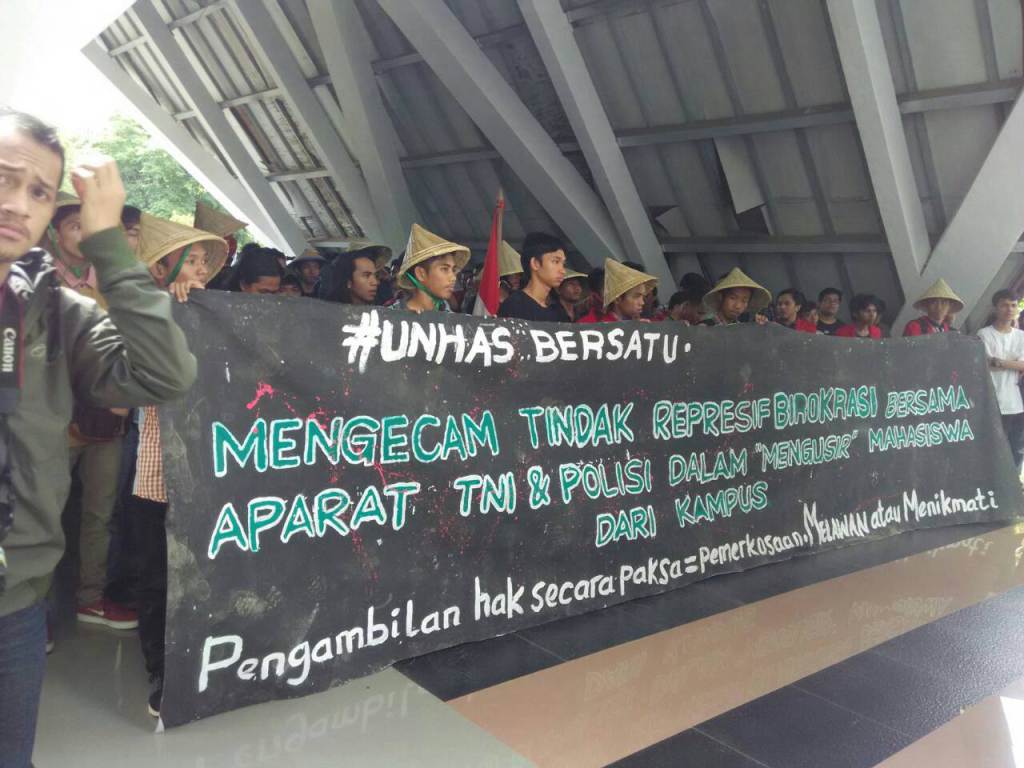 #UNHAS BERSATU.
MENGECAM TINDAK REPRESIF BIROKRASI BERSAMA
APARAT TNI & POLISI DALAM "MENGUSIR" MAHASISWA
DARI KAMPUS
Pengambilan hak secara paksa = pemerkosaan. MELAWAN atau Menikmati
Canon